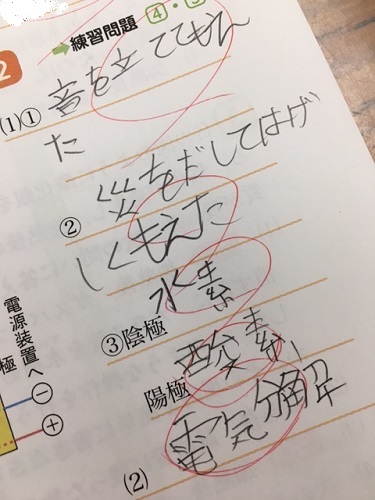 2
練習問題 4・5
(1)① 音を立ててもえ
た
② 災をだしてはげ
しくもえた
③陰極 水素
陽極 酸素
(2) 電気分解
電源装置へ
極
−
+